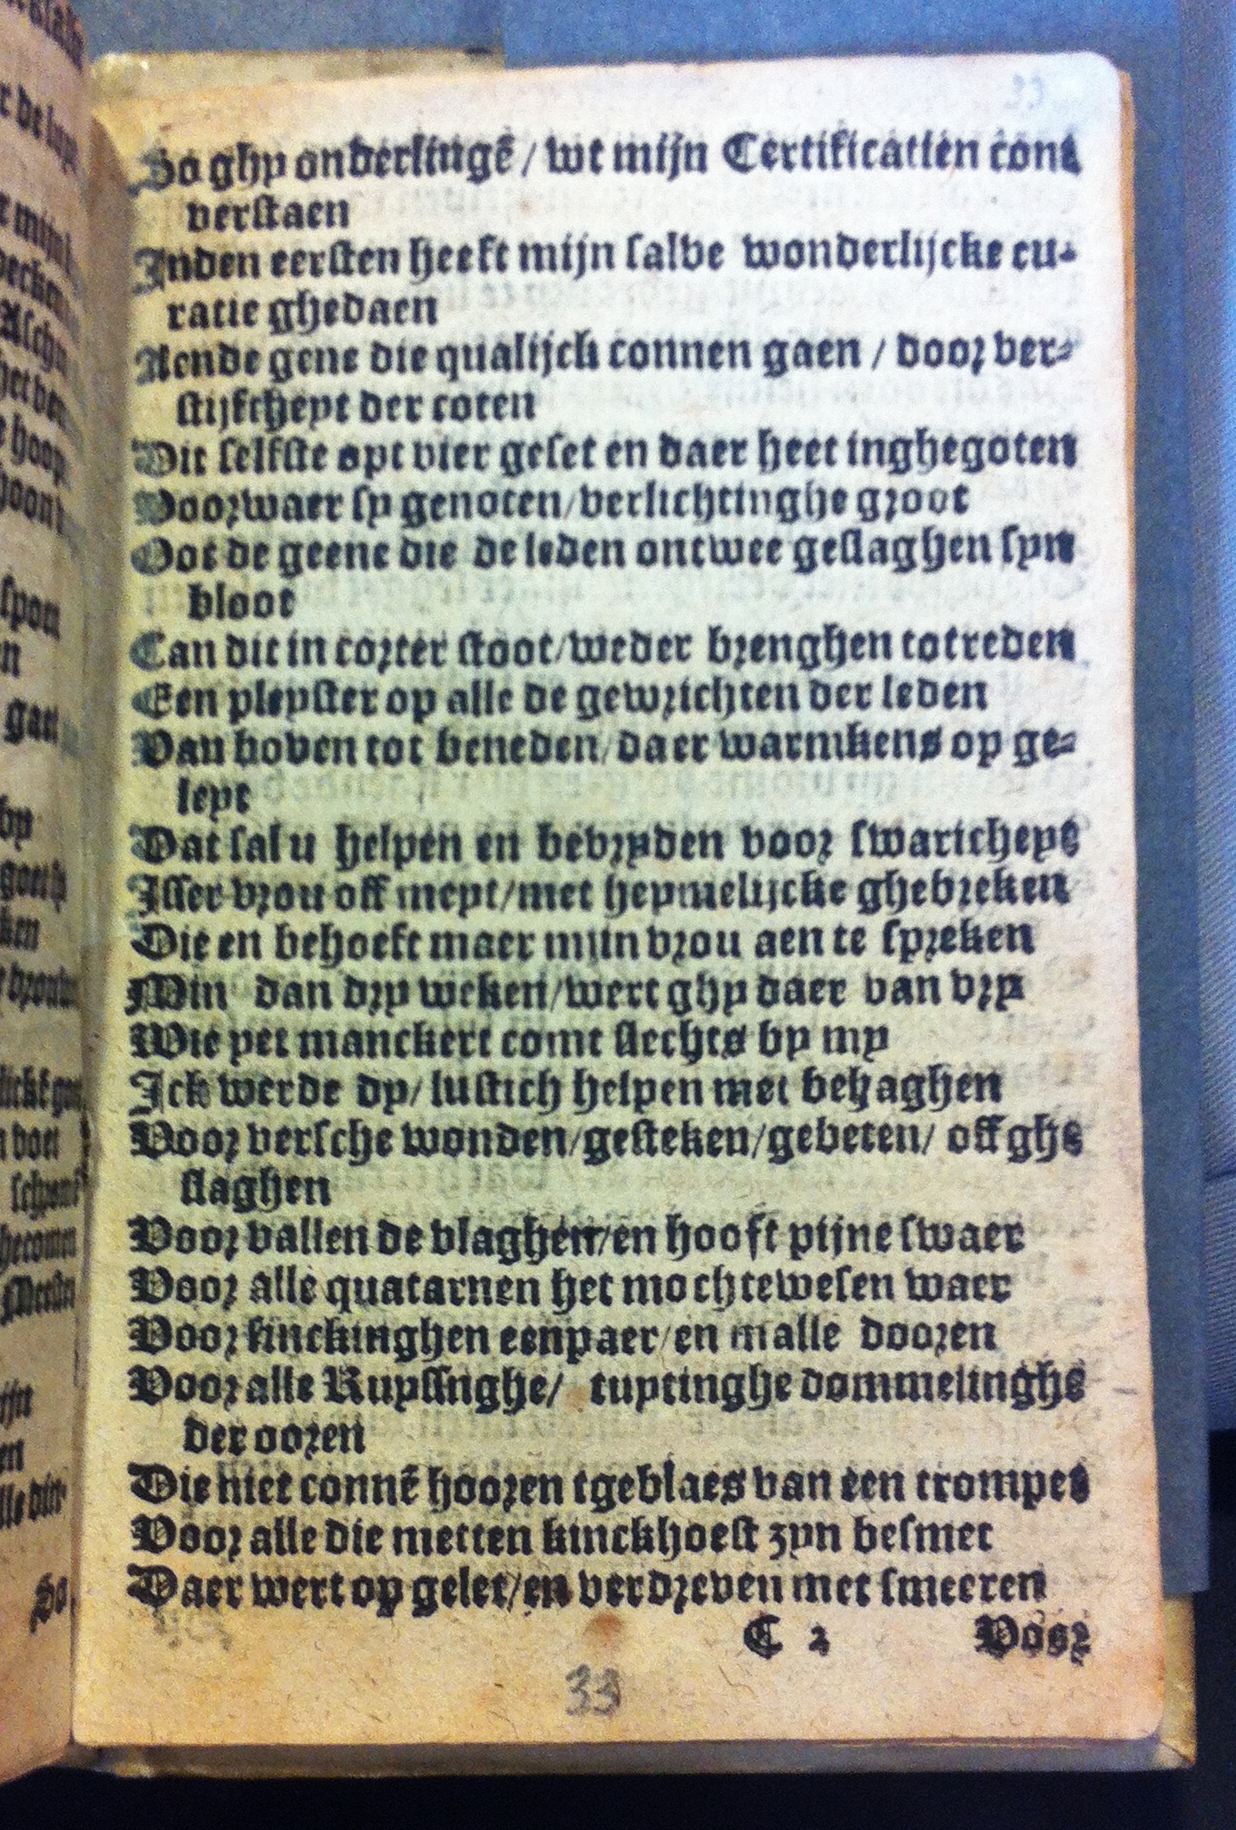 So ghy onderlingẽ / wt mijn Certificatien cont
verstaen
Inden eersten heeft mijn salve wonderlijcke cu-
ratie ghedaen
Aende gene die qualijck connen gaen / door ver-
stijftheyt der coten
Dit selfste opt vier geset en daer heet inghegoten
Voorwaer sy genoten/verlichtinghe groot
Oot de geene die de leden ontwee geslaghen syn
bloot
Can dit in corter stoot/weder brenghen tot reden
Een pleyster op alle de gewrichten der leden
Van boven tot beneden/daer warmkens op ge-
leyt
Dat sal u helpen en bevryden voor swaricheyt
Isser vrou off meyt/met heymelijcke ghebreken
Die en behoeft maer mijn vrou aen te spreken
Min dan dry weken/wert ghy daer van vry
Wie yet manckert comt slechts by my
Ick werde dy/ lustich helpen met behaghen
Voor versche wonden/gesteken/gebeten/ off ghe
slaghen
Voor vallen de vlaghen/en hooft pijne swaer
Voor alle quatarnen het mochtewesen waer
Voor sinckinghen eenpaer/en malle dooren
Voor alle Ruyssinghe/ tuytinghe dommelinghe
der ooren
Die niet connẽ hooren tgeblaes van een trompet
Voor alle die metten kinckhoest zyn besmet
Daer wert op gelet/en verdreven met smeeren
C 2 Voor
33